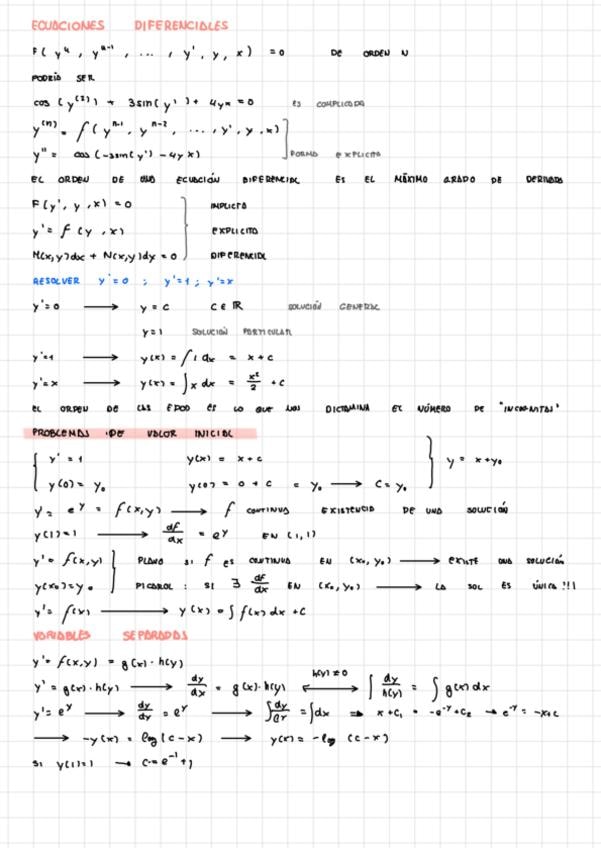 ECUACIONES DIFERENCIALES
F( yⁿ, yⁿ⁻¹, ..., y', y, x) = 0 DE ORDEN N
PODRÍA SER
cos (y⁽²⁾) + 3sin(y') + 4yx = 0 ES COMPLICADA
y⁽ⁿ⁾ = f(yⁿ⁻¹, yⁿ⁻², ..., y', y, x)
y'' = cos (-3sin(y') - 4yx) FORMA EXPLICITA
EL ORDEN DE UNA ECUACIÓN DIFERENCIAL ES EL MÁXIMO GRADO DE DERIVADA
F(y', y, x) = 0 IMPLICITA
y' = f (y, x) EXPLICITA
M(x,y)dx + N(x,y)dy = 0 DIFERENCIAL
RESOLVER y'=0 ; y'=1 ; y'=x
y'=0 → y = c C ∈ ℝ SOLUCIÓN GENERAL
y=1 SOLUCIÓN PARTICULAR
y'=1 → y(x) = ∫ 1 dx = x + c
y'=x → y(x) = ∫ x dx = x²/2 + c
EL ORDEN DE LAS EDOD ES LO QUE NOS DICTAMINA EL NÚMERO DE "INCOGNITAS"
PROBLEMAS DE VALOR INICIAL
{ y' = 1 y(x) = x + c
y(0) = y₀ y(0) = 0 + c = y₀ → C = y₀ } y = x + y₀
y' = eʸ = f(x,y) → f CONTINUA EXISTENCIA DE UNA SOLUCIÓN
y(1)=1 → df/dx = eʸ EN (1,1)
y' = f(x,y) } PLANO SI f ES CONTINUA EN (x₀, y₀) → EXISTE UNA SOLUCIÓN
y(x₀) = y₀ PICAROL : SI ∃ df/dx EN (x₀, y₀) → LA SOL ES ÚNICA !!!
y' = f(x) → y(x) = ∫ f(x) dx + C
VARIABLES SEPARADAS
y' = f(x,y) = g(x) · h(y)
y' = g(x) · h(y) → dy/dx = g(x) · h(y) ⟷ h(y) ≠ 0 ∫ dy/h(y) = ∫ g(x) dx
y' = eʸ → dy/dy = eʸ → ∫ dy/eʸ = ∫dx ⇒ x + C₁ = -e⁻ʸ + C₂ → e⁻ʸ = -x+c
→ -y(x) = log(c-x) → y(x) = -log (c-x)
SI y(1)=1 → C = e⁻¹ + 1